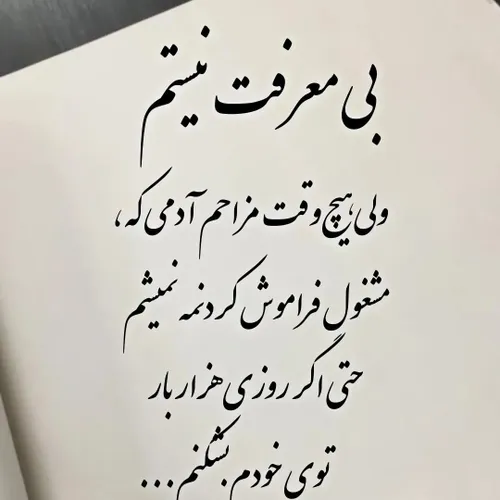 بی معرفت نیستم
ولی هیچ وقت مزاحم آدمی که،
مشغول فراموش کردنمه نمیشم
حتی اگر روزی هزار بار
توی خودم بشکنم...